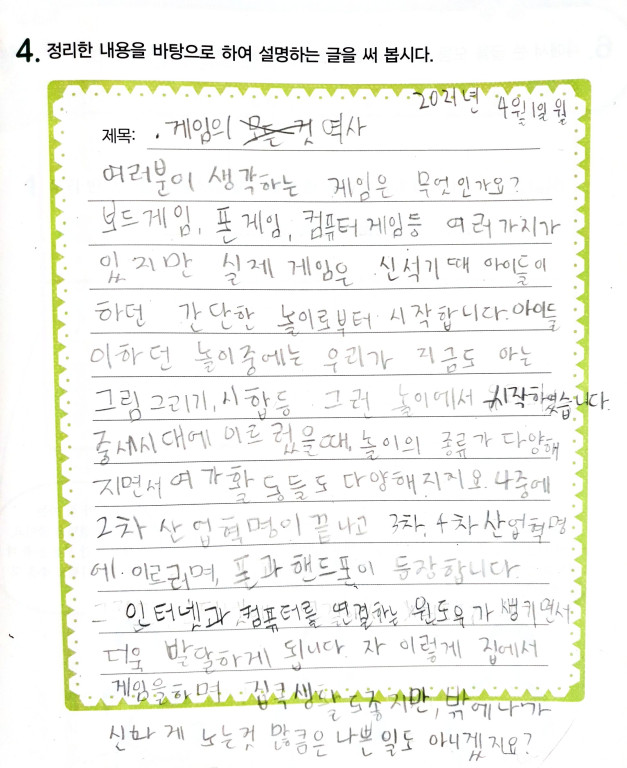 4. 정리한 내용을 바탕으로 하여 설명하는 글을 써 봅시다.
2021년 4월1일 월
제목: . 게임의 모든 것 역사
여러분이 생각하는 게임은 무엇인가요?
보드게임, 폰게임, 컴퓨터 게임등 여러가지가
있지만 실제 게임은 신석기때 아이들이
하던 간단한 놀이로부터 시작합니다. 아이들
이하던 놀이중에는 우리가 지금도 아는
그림그리기, 시합등 그런 놀이에서 시작하였습니다.
중세시대에 이르렀을때, 놀이의 종류가 다양해
지면서 여가활동들도 다양해지지요. 나중에
2차 산업혁명이 끝나고 3차, 4차 산업혁명
에 이르러며, 폰과 핸드폰이 등장합니다.
인터넷과 컴퓨터를 연결하는 윈도우가 생키면서
더욱 발달하게 됩니다. 자 이렇게 집에서
게임을하며 집콕생활도좋지만, 밖에나가
신나게 노는것 많큼은 나쁜일도 아니겠지요?